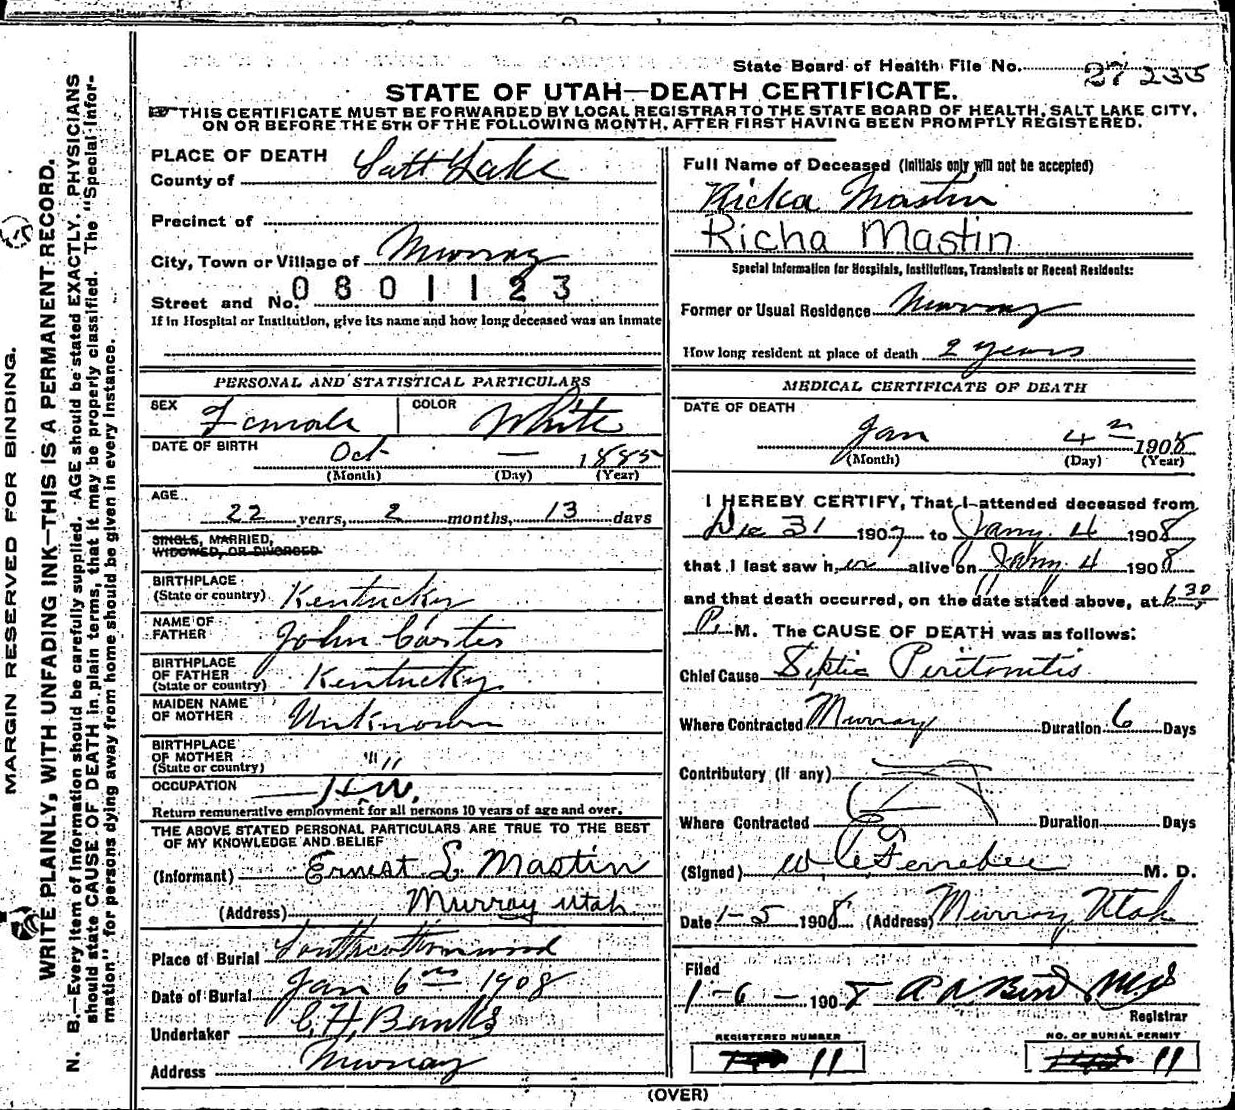 State Board of Health File No. 27235
STATE OF UTAH—DEATH CERTIFICATE.
THIS CERTIFICATE MUST BE FORWARDED BY LOCAL REGISTRAR TO THE STATE BOARD OF HEALTH, SALT LAKE CITY,
ON OR BEFORE THE 5TH OF THE FOLLOWING MONTH, AFTER FIRST HAVING BEEN PROMPTLY REGISTERED.
MARGIN RESERVED FOR BINDING.
WRITE PLAINLY, WITH UNFADING INK—THIS IS A PERMANENT RECORD.
N. B.—Every item of information should be carefully supplied. AGE should be stated EXACTLY. PHYSICIANS
should state CAUSE OF DEATH in plain terms, that it may be properly classified. The "Special Infor-
mation" for persons dying away from home should be given in every instance.
PLACE OF DEATH
County of Salt Lake
Precinct of
City, Town or Village of Murray
Street and No. 0801123
If in Hospital or Institution, give its name and how long deceased was an inmate
PERSONAL AND STATISTICAL PARTICULARS
SEX Female COLOR White
DATE OF BIRTH Oct — 1885
(Month) (Day) (Year)
AGE
22 years, 2 months, 13 days
SINGLE, MARRIED,
WIDOWED, OR DIVORCED
BIRTHPLACE
(State or country) Kentucky
NAME OF
FATHER John Carter
BIRTHPLACE
OF FATHER
(State or country) Kentucky
MAIDEN NAME
OF MOTHER Unknown
BIRTHPLACE
OF MOTHER
(State or country) " "
OCCUPATION H.W.
Return remunerative employment for all persons 10 years of age and over.
THE ABOVE STATED PERSONAL PARTICULARS ARE TRUE TO THE BEST
OF MY KNOWLEDGE AND BELIEF
(Informant) Ernest L. Mastin
(Address) Murray Utah
Place of Burial Southcottonwood
Date of Burial Jan 6th 1908
Undertaker C. H. Banks
Address Murray
Full Name of Deceased (Initials only will not be accepted)
Ricka Mastin
Richa Mastin
Special Information for Hospitals, Institutions, Transients or Recent Residents:
Former or Usual Residence Murray
How long resident at place of death 2 years
MEDICAL CERTIFICATE OF DEATH
DATE OF DEATH
Jan 4th 1908
(Month) (Day) (Year)
I HEREBY CERTIFY, That I attended deceased from
Dec 31 1907 to Jany. 4 1908
that I last saw her alive on Jany. 4 1908
and that death occurred, on the date stated above, at 6 30
P. M. The CAUSE OF DEATH was as follows:
Chief Cause Septic Peritonitis
Where Contracted Murray Duration 6 Days
Contributory (if any)
Where Contracted Duration Days
(Signed) W. C. Ferrebee M. D.
Date 1-5 1908 (Address) Murray Utah
Filed
1-6- 1908
Registrar
REGISTERED NUMBER
11
NO. OF BURIAL PERMIT
11
(OVER)